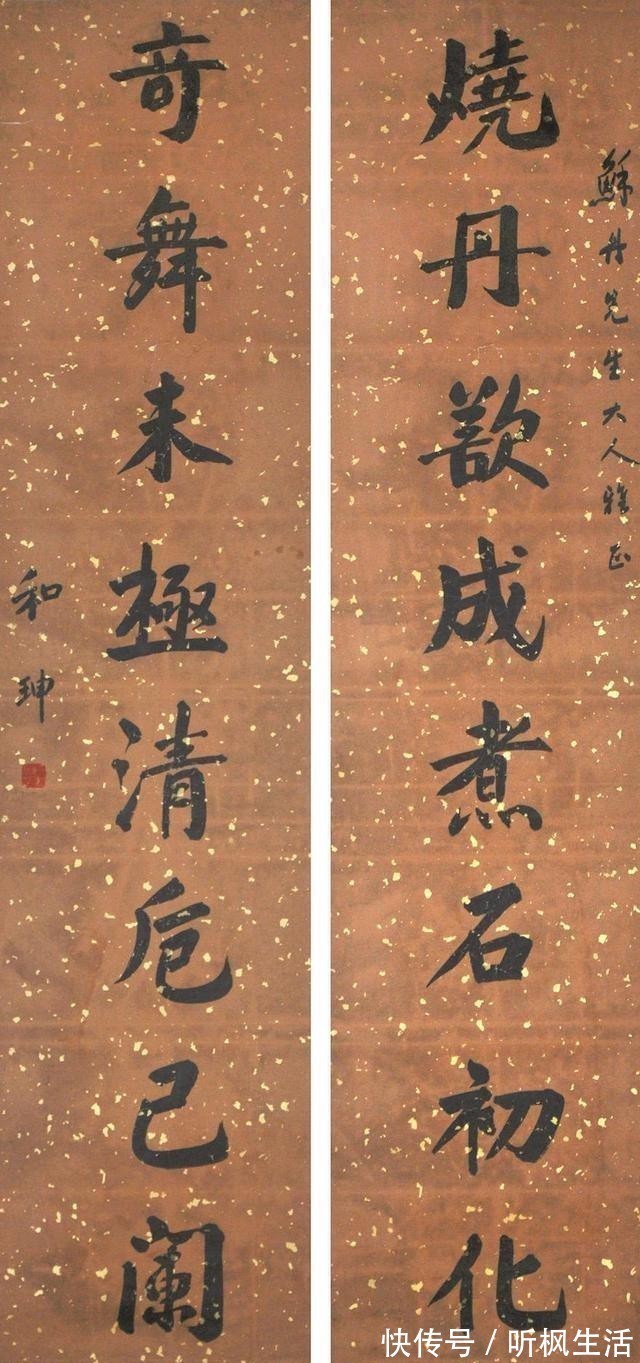 穌丹先生大人雅正
燒丹欲成煮石初化
奇舞未極清卮已闌
和珅
快传号/听枫生活